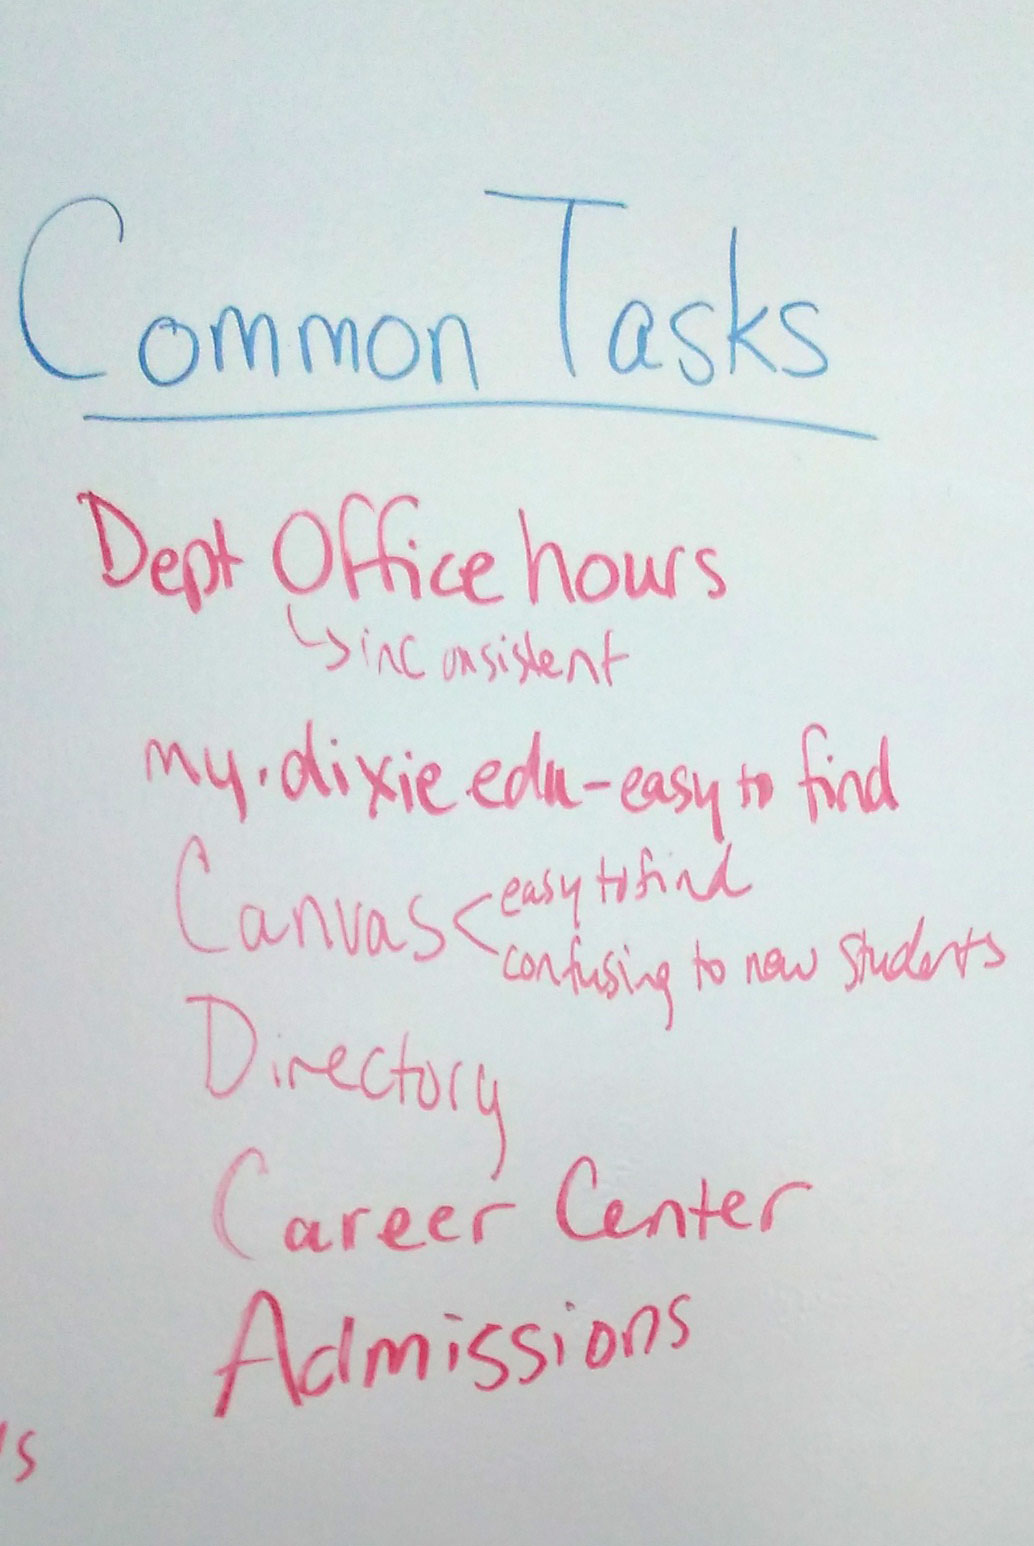 Common Tasks
Dept Office hours
↳inconsistent
my.dixie.edu-easy to find
Canvas< easy to find
confusing to new students
Directory
Career Center
Admissions